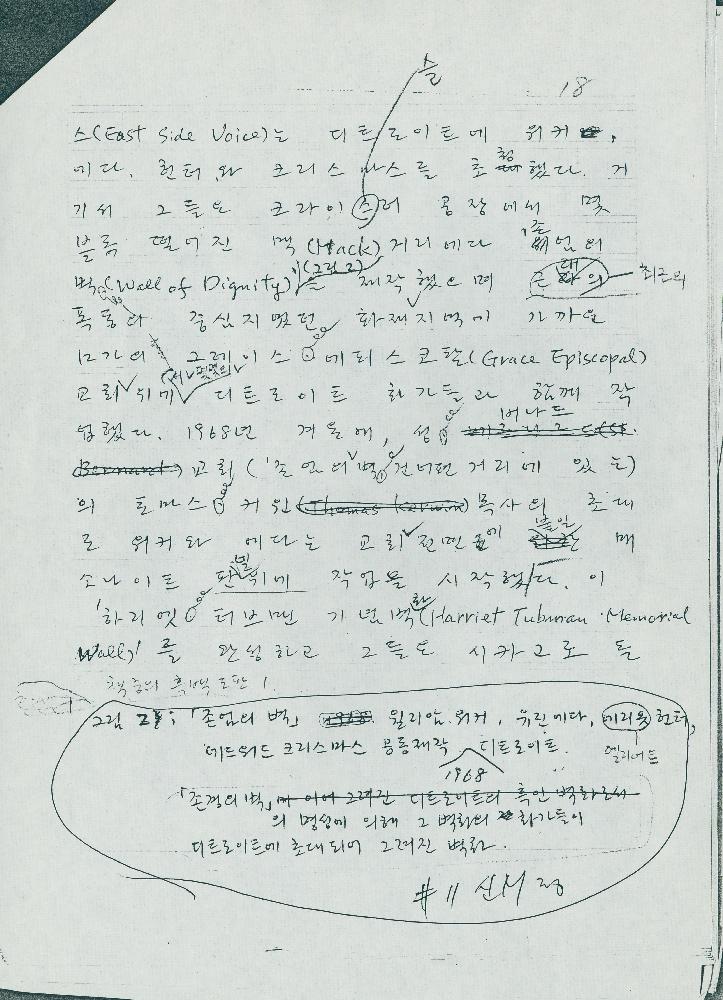 슬
18
스(East Side Voice)는 디트로이트에 워커,
에다, 헌터와 크리스마스를 초청했다. 거
기서 그들은 크라이스러 공장에서 몇
블록 떨어진 맥(Mack)거리에다 '존엄의
벽(Wall of Dignity)'(그림2)을 제작했으며 최근의
폭동의 중심지였던 화재지역에 가까운
12가의 그레이스 에피스코팔(Grace Episcopal)
교회 위에 디트로이트 화가들과 함께 작
업했다. 1968년 겨울에, 성 버나드
교회('존엄의 벽' 건너편 거리에 있는)
의 토마스 커윈(Thomas Kerwin)목사의 초대
로 워커와 에다는 교회 전면에 붙일 메
소나이트 판넬위에 작업을 시작했다. 이
'하리엣 터브먼 기념벽화(Harriet Tubman Memorial
Wall)'를 완성하고 그들은 시카고로 돌
책중의 흑백도판 1.
그림 2: 「존엄의 벽」 윌리암 워커, 유진 에다, 에리옷 헌터,
엘리어트
에드워드 크리스마스 공동제작 디트로이트.
1968
「존경의 벽」이 이어 그려진 디트로이트의 흑인 벽화로서
의 명성에 의해 그 벽화의 화가들이
디트로이트에 초대되어 그려진 벽화.
# 11